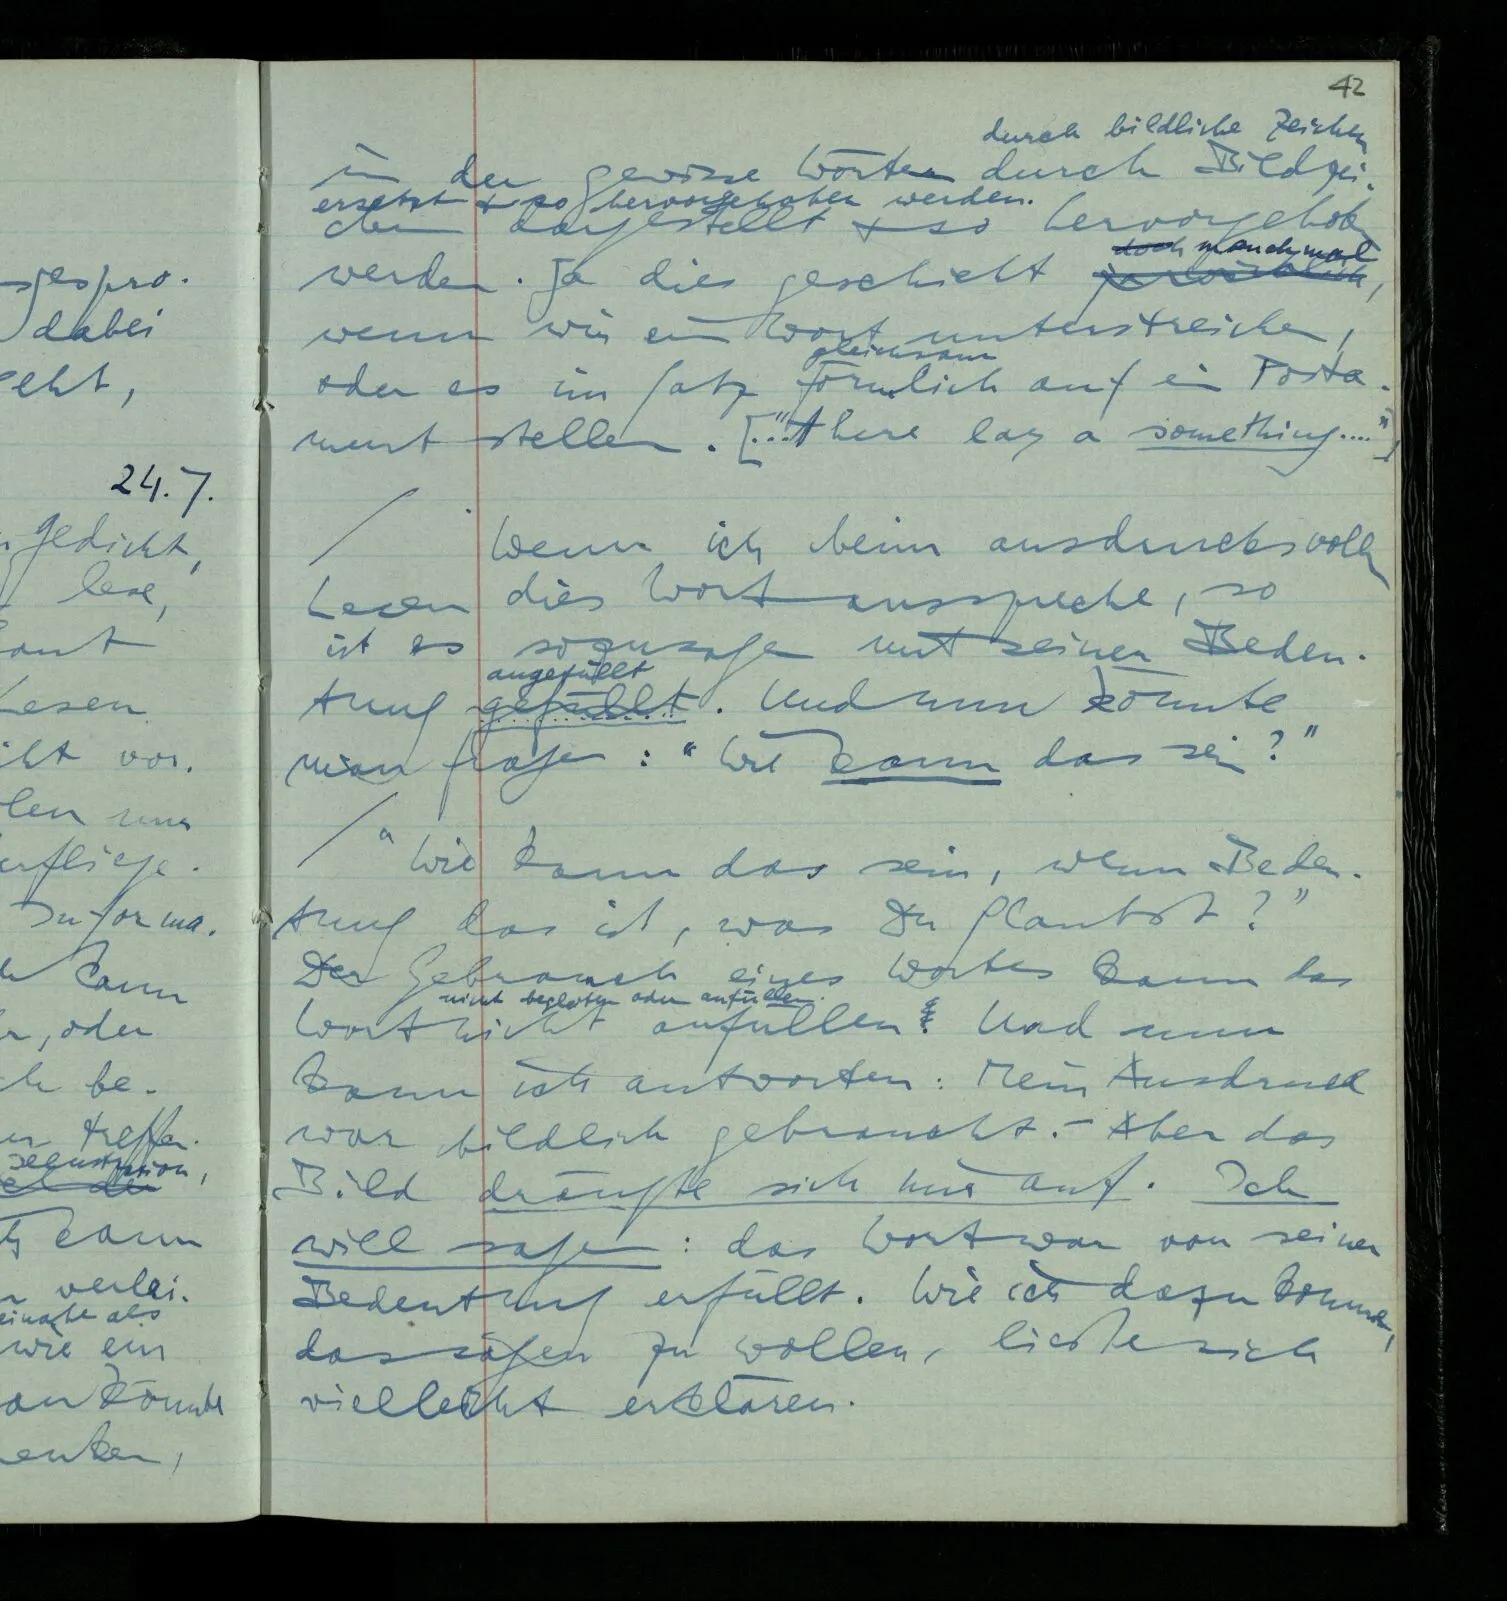 sgespro-
dabei
eht,
24.7.
Gedicht,
lese,
Laut
Lesen
vor.
Informa-
kann
er, oder
be-
treffen-
Illustration,
kann
verlei-
beinahe als
wie ein
man könnte
denken,
42
durch bildliche Zeichen
in der gewisse Wörter durch Bildzei-
ersetzt & so hervorgehoben werden.
chen dargestellt & so hervorgehoben
doch manchmal
werden. Ja dies geschieht ja wirklich,
wenn wir ein Wort unterstreichen,
gleichsam
oder es im Satz förmlich auf ein Posta-
ment stellen. [“...there lay a something....”]
/ Wenn ich beim ausdrucksvollen
Lesen dies Wort ausspreche, so
ist es sozusagen mit seiner Bedeu-
angefüllt
tung gefüllt. Und nun könnte
man fragen: “Wie kann das sein?”
/ “Wie kann das sein, wenn Bedeu-
tung das ist, was Du glaubst?”
Der Gebrauch eines Wortes kann das
nicht begleiten oder anfüllen.
Wort nicht anfüllen! Und nun
kann ich antworten: Mein Ausdruck
war bildlich gebraucht. – Aber das
Bild drängte sich mir auf. Ich
will sagen: das Wort war von seiner
Bedeutung erfüllt. Wie ich dazu komme,
das sagen zu wollen, ließe sich
vielleicht erklären.